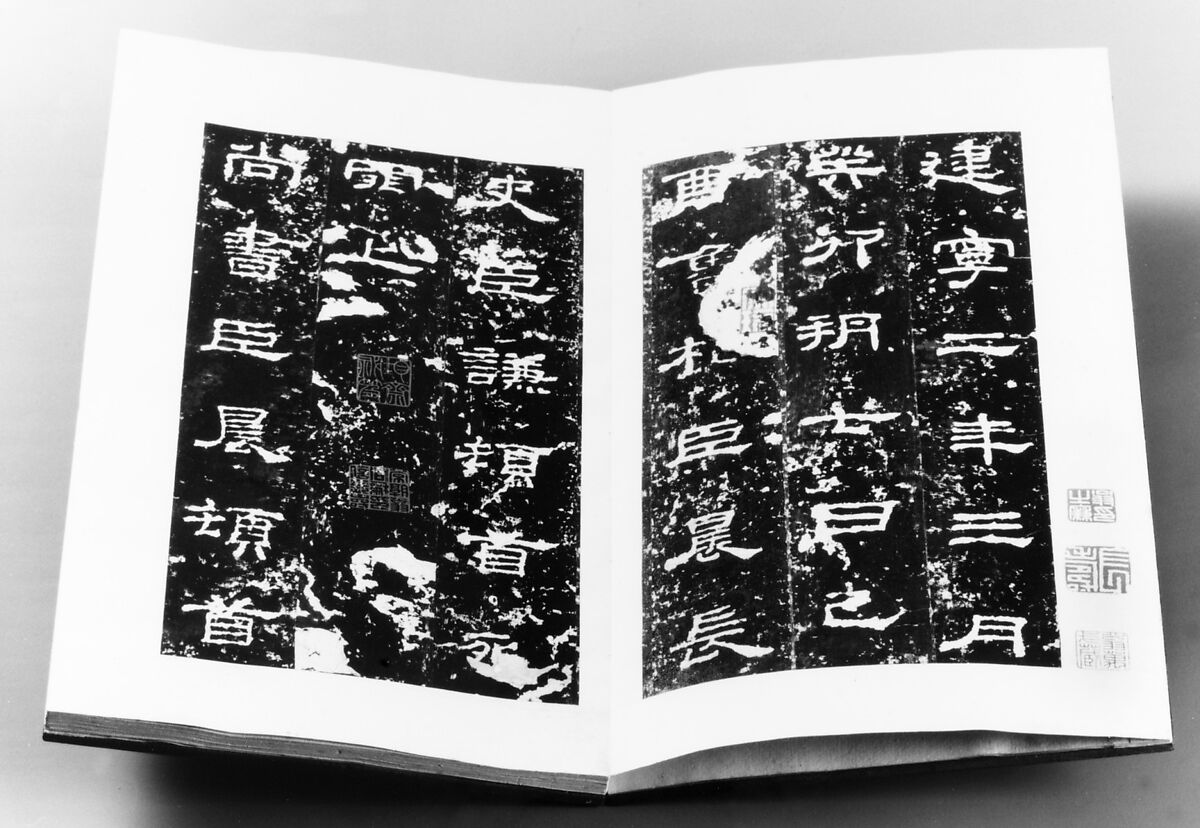 建寧二年三月
癸卯朔七日己
酉魯相臣晨長
史臣謙頓首死
罪上
尚書臣晨頓首